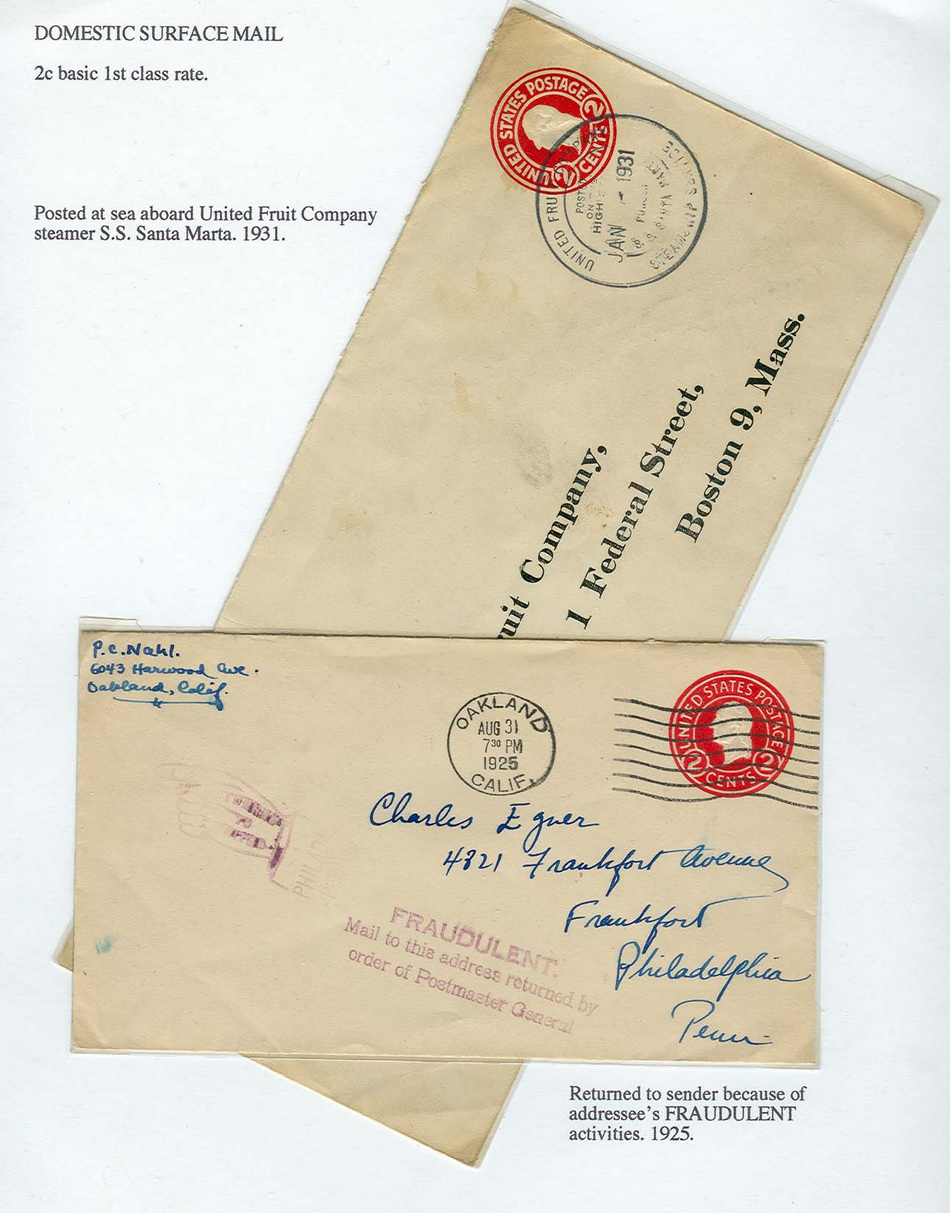 DOMESTIC SURFACE MAIL
2c basic 1st class rate.
Posted at sea aboard United Fruit Company
steamer S.S. Santa Marta. 1931.
UNITED STATES POSTAGE
2 CENTS 2
UNITED FRUIT
STEAMSHIP SERVICE
POSTED
ON
HIGH
JAN - 1931
S.S. SANTA MARTA
ruit Company,
1 Federal Street,
Boston 9, Mass.
P.C. Nahl.
6043 Harwood Ave.
Oakland, Calif.
OAKLAND
AUG 31
7 30 PM
1925
CALIF.
UNITED STATES POSTAGE
2 CENTS 2
Charles Egner
4821 Frankfort Avenue
Frankfort
Philadelphia
Penn.
PHILAD
FRAUDULENT.
Mail to this address returned by
order of Postmaster General
Returned to sender because of
addressee's FRAUDULENT
activities. 1925.